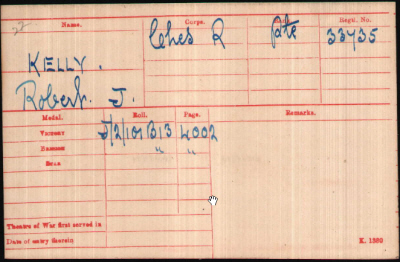 Name. Corps. Rank. Regtl. No.
22 Ches R Pte 33735
KELLY.
Robert. J.
Medal. Roll. Page. Remarks.
Victory J/2/101B13 4002
British " "
Star
Theatre of War first served in
Date of entry therein
K. 1380